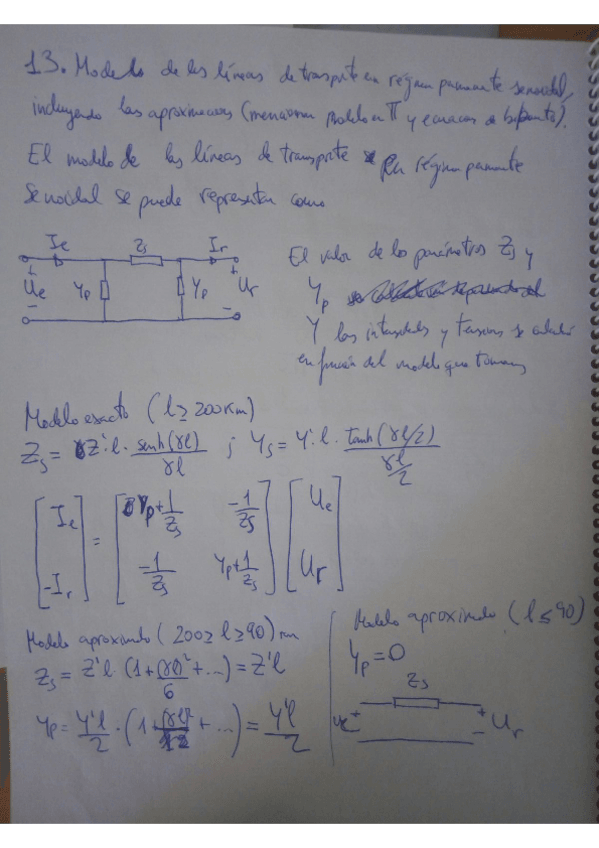 13. Modelo de las líneas de transporte en régimen permanente senoidal,
incluyendo las aproximaciones (mencionar modelo en π y ecuaciones de bipuerta).
El modelo de las líneas de transporte en régimen permanente
senoidal se puede representar como
Ie Zs Ir
+ Ue - Yp Yp + Ur -
El valor de los parámetros Zs y
Yp
Y las intensidades y tensiones se calculan
en función del modelo que tomamos
Modelo exacto (l ≥ 200 km)
Zs = Z'·l · senh(γl)/γl ; Ys = Y'·l · tanh(γl/2)/(γl/2)
[Ie -Ir] = [Yp+1/Zs -1/Zs -1/Zs Yp+1/Zs] [Ue Ur]
Modelo aproximado (200 ≥ l ≥ 90) km
Zs = Z'l (1 + (γl)²/6 + ...) = Z'l
Yp = Y'l/2 · (1 + (γl)²/12 + ...) = Y'l/2
Modelo aproximado (l ≤ 90)
Yp = 0
Zs
Ue + + - Ur